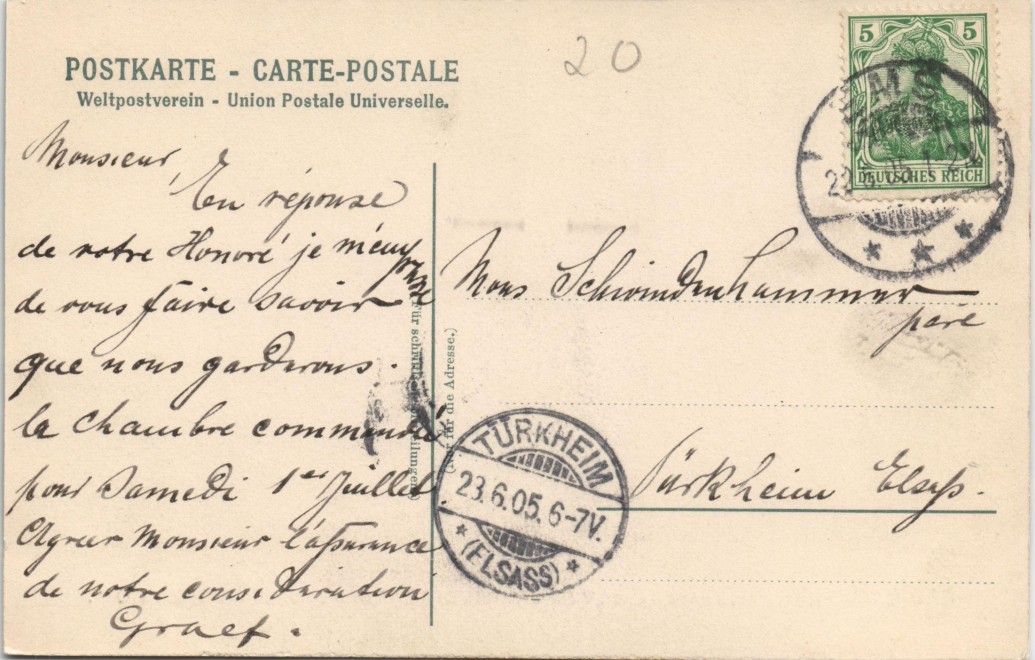 POSTKARTE - CARTE-POSTALE
Weltpostverein - Union Postale Universelle.
20
5 5
DEUTSCHES REICH
EMS
Monsieur,
En réponse
de votre Honoré je m'empresse
de vous faire savoir
que nous garderons.
la chambre commandé
pour Samedi 1er Juillet.
Agreer Monsieur l'assurance
de notre consideration
Graef.
(Nur für die Adresse.)
Mons Schwindenhammer
père
Türkheim Elsass.
TÜRKHEIM
23.6.05. 6-7V.
* (ELSASS) *